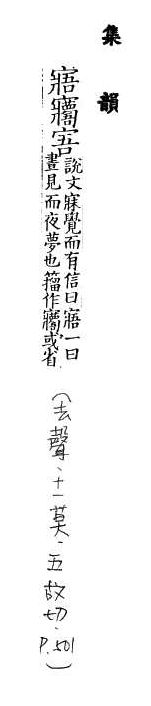 集韻
寤㝱害說文寐覺而有信曰寤一曰
晝見而夜夢也籀作㝱或省
(去聲、十一莫、五故切、P.501)